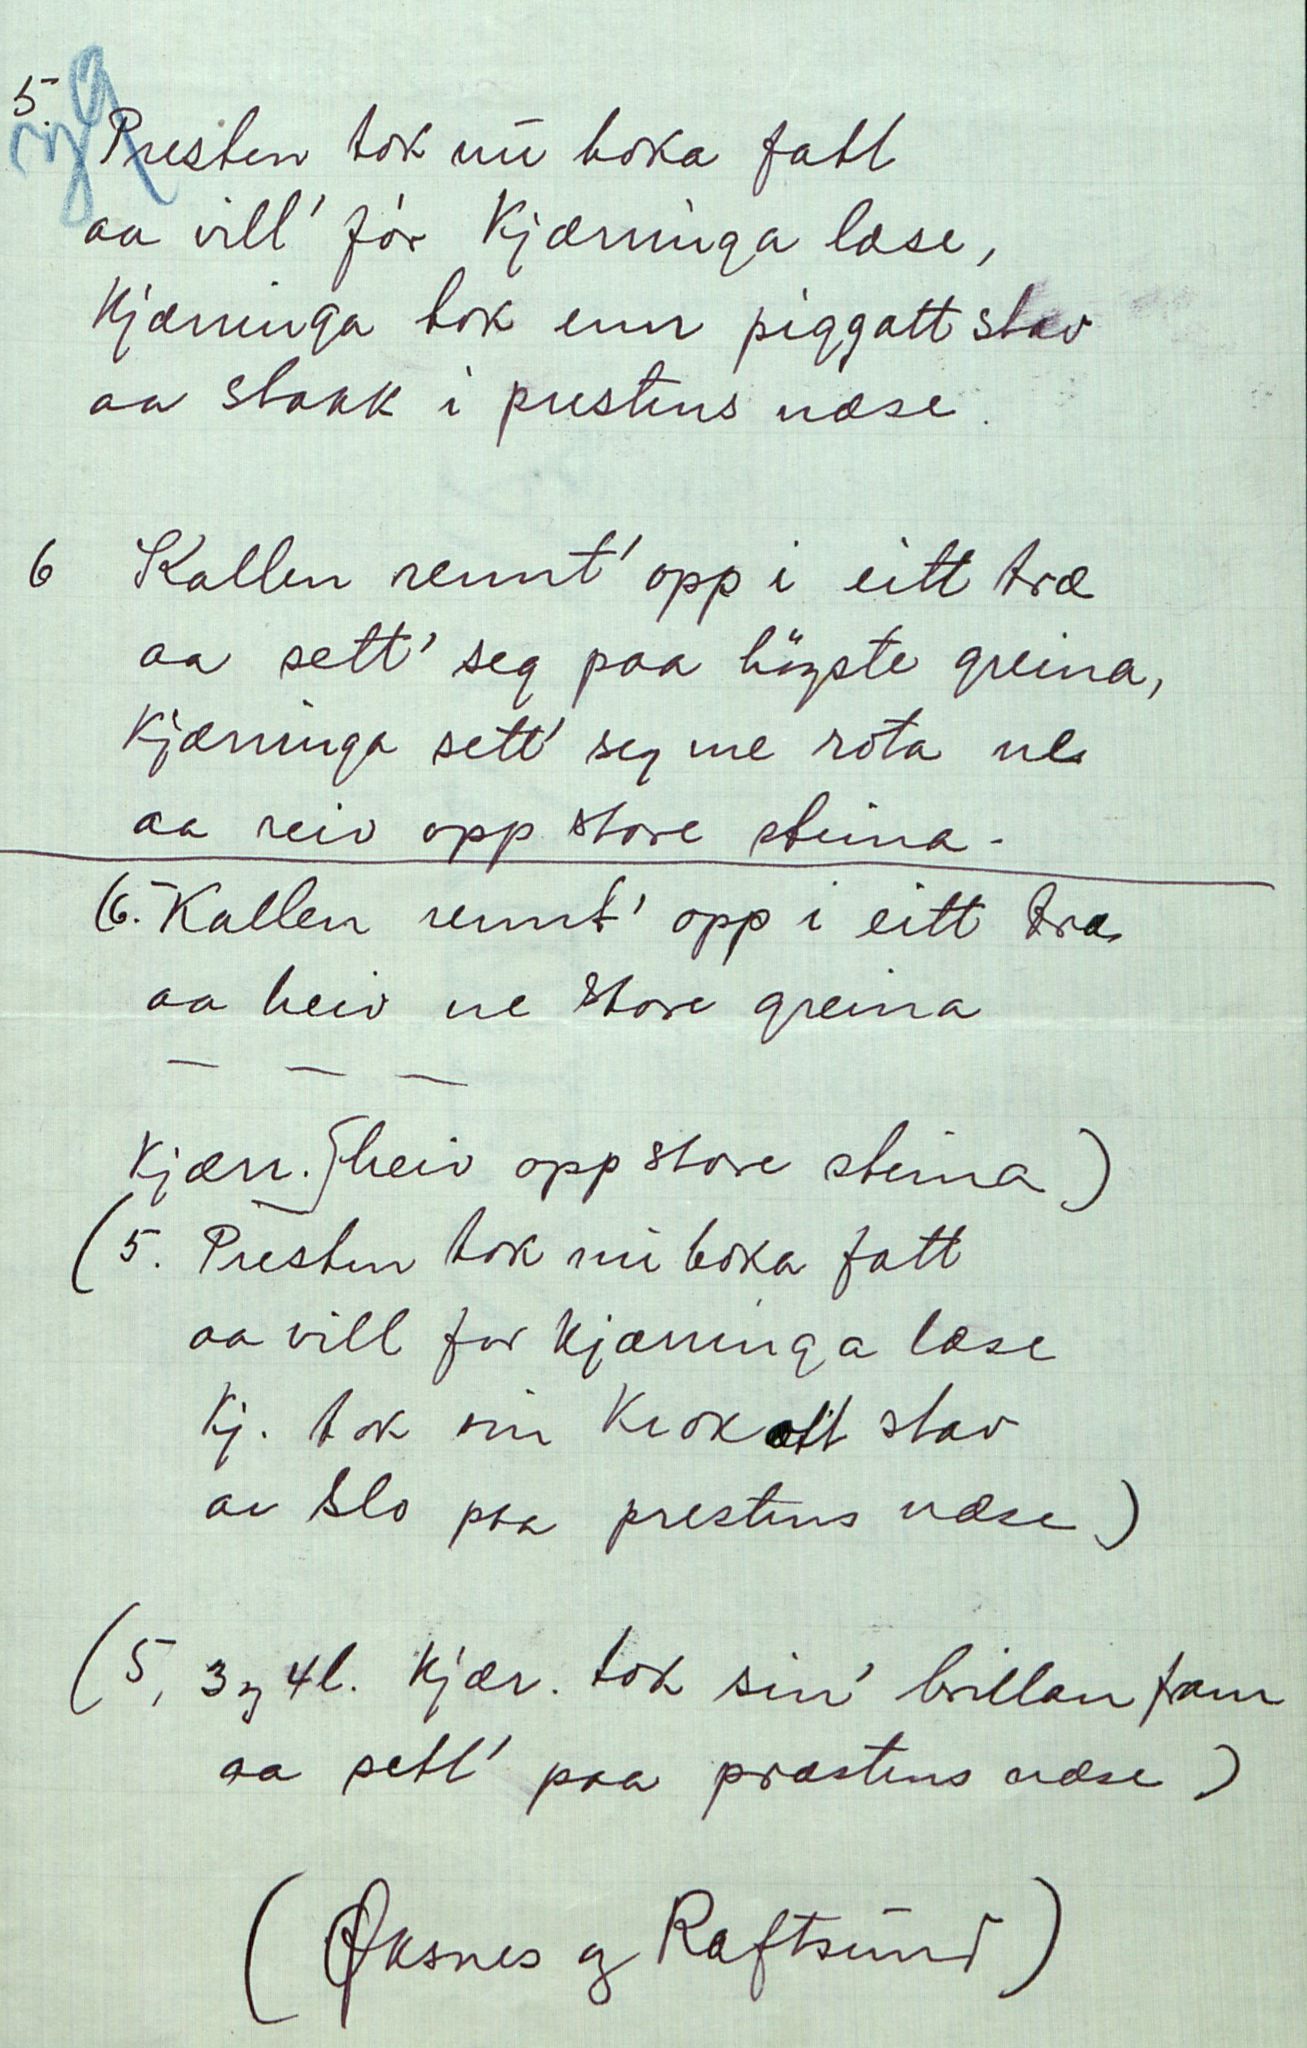 5. Presten tok nu boka fatt
aa vill' fór Kjæringa læse,
Kjæringa tok enn piggatt stav
aa stakk i prestens næse.
6 Kallen rennt' opp i eitt træ
aa sett' seg paa högste greina,
Kjæringa sett' seg me rota ne
aa reiv opp store steina.
(6. Kallen rennt' opp i eitt træ
aa heiv ne store greina
— — —
Kjærr. heiv opp store steina)
(5. Presten tok nu boka fatt
aa vill for kjæringa læse
Kj. tok ein krokatt stav
aa slo paa prestens næse)
(5, 3 og 4 l. Kjær. tok sin' brillan fram
aa sett' paa præstens næse)
(Øksnes og Raftsund)